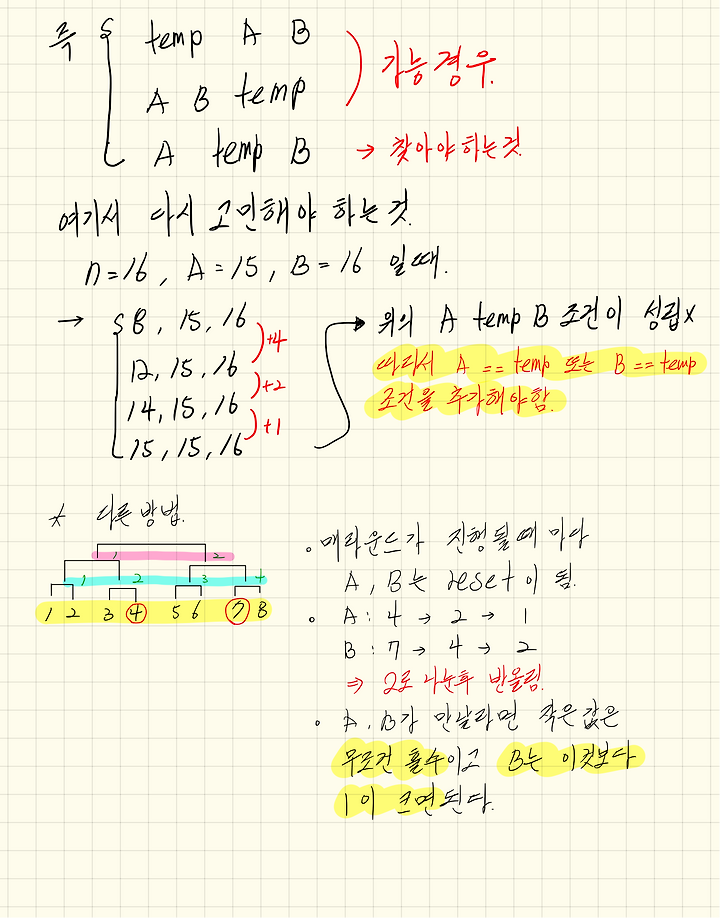 즉 temp A B
A B temp
가능경우.
A temp B → 찾아야하는것.
여기서 다시 고민해야 하는것.
n=16, A=15, B=16 일때.
→ 8, 15, 16
12, 15, 16
14, 15, 16
15, 15, 16
+4
+2
+1
위의 A temp B 조건이 성립x
따라서 A == temp 또는 B == temp
조건을 추가해야함.
* 다른방법.
1 2
1 2 3 4
1 2 3 4 5 6 7 8
• 매라운드가 진행될때 마다
A, B는 reset이 됨.
• A : 4 → 2 → 1
B : 7 → 4 → 2
⇒ 2로 나눈후 반올림.
• A, B가 만날라면 작은값은
무조건 홀수이고 B는 이것보다
1이 크면된다.